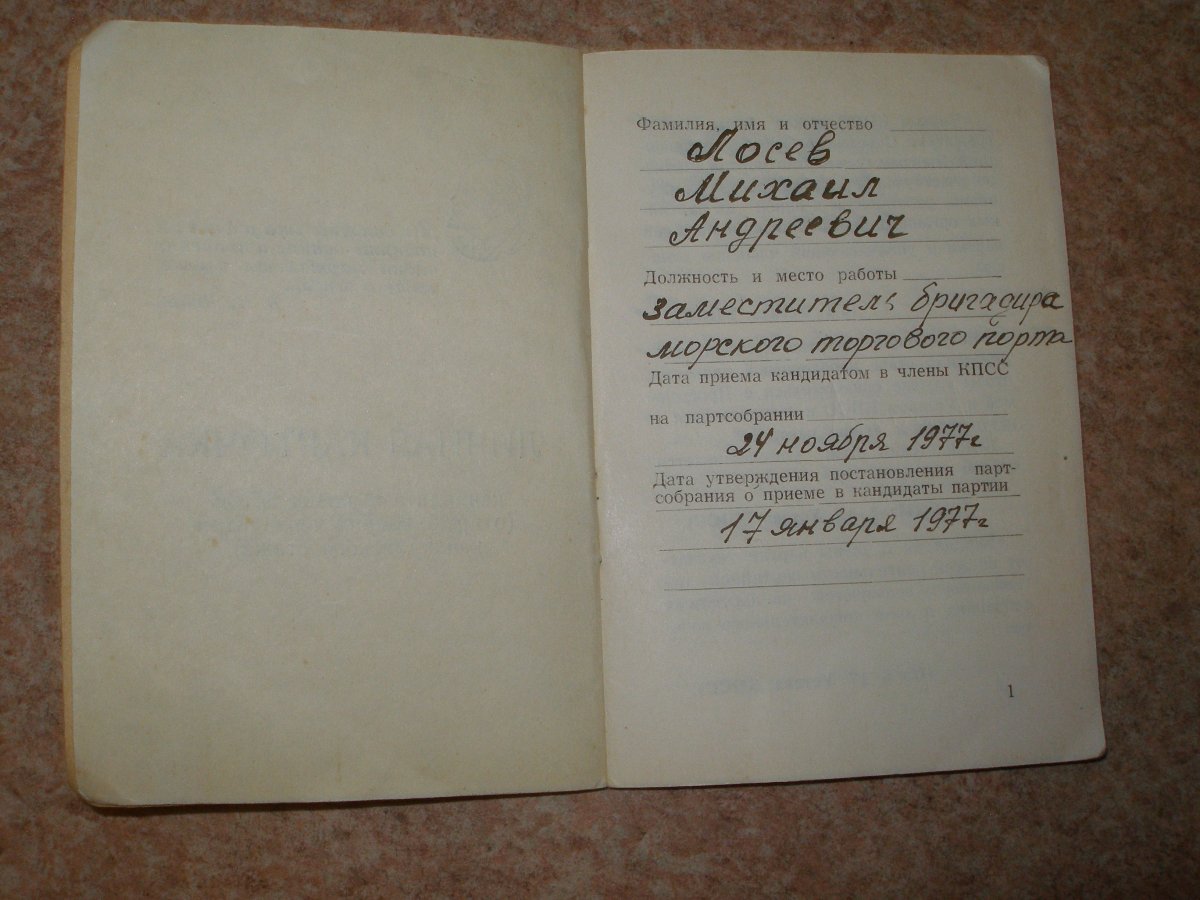 Фамилия, имя и отчество
Лосев
Михаил
Андреевич
Должность и место работы
заместитель бригадира
морского торгового порта
Дата приема кандидатом в члены КПСС
на партсобрании
24 ноября 1977г
Дата утверждения постановления парт-
собрания о приеме в кандидаты партии
17 января 1977г
1